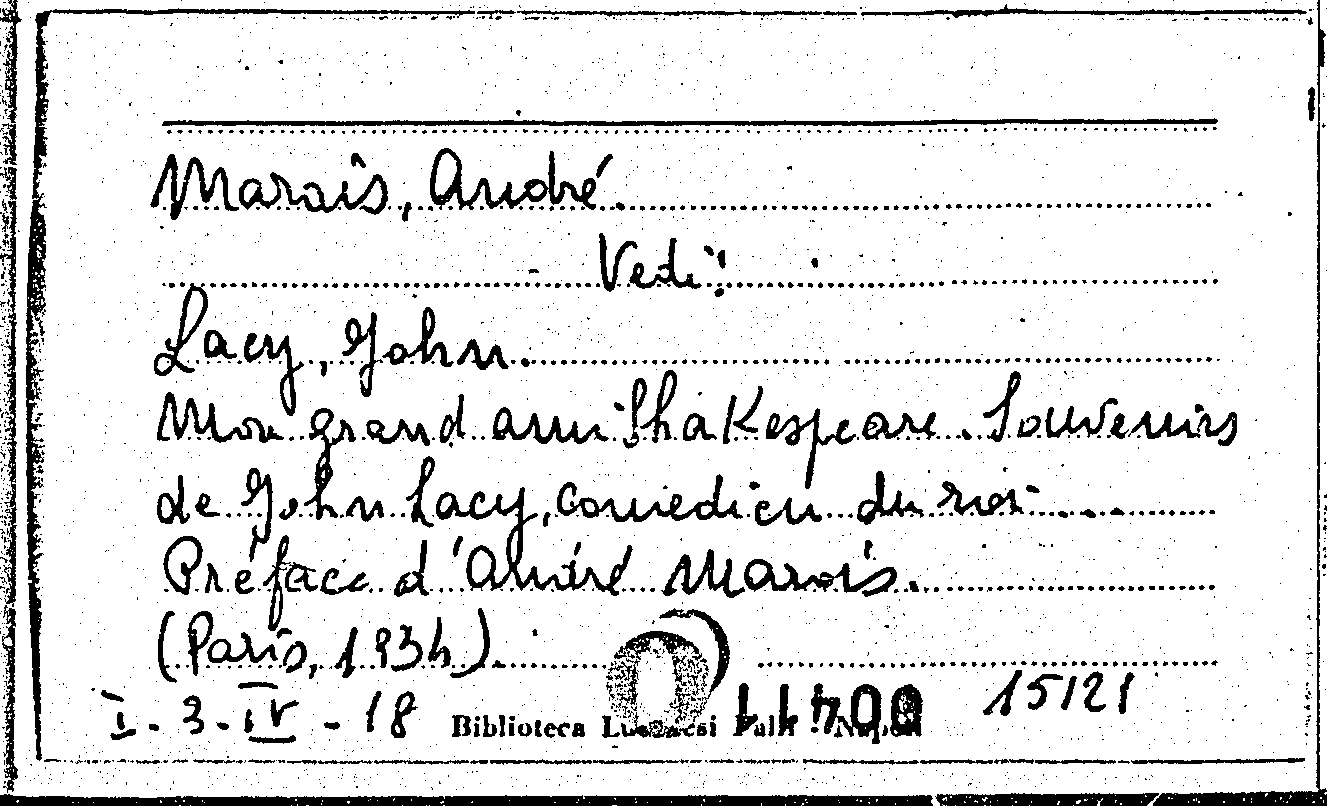 Marais, André.
Vedi:
Lacy, John.
Mon grand ami Shakespeare. Souvenirs
de John Lacy, comedien du roi ...
Préface d'André Marois.
(Paris, 1934).
I. 3. IV - 18 Biblioteca Lucchesi Palli - Napoli 15121